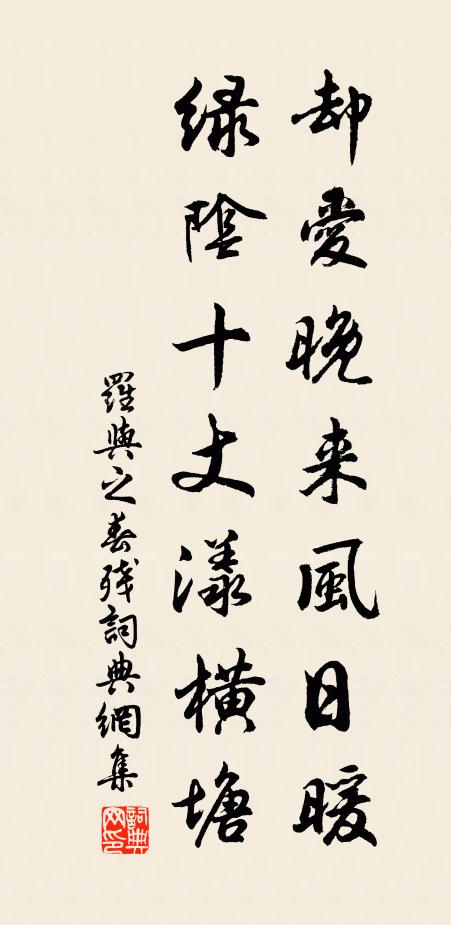 却愛晚来風日暖
緑陰十丈漾橫塘
羅與之春殘詞典網集
詞典網印